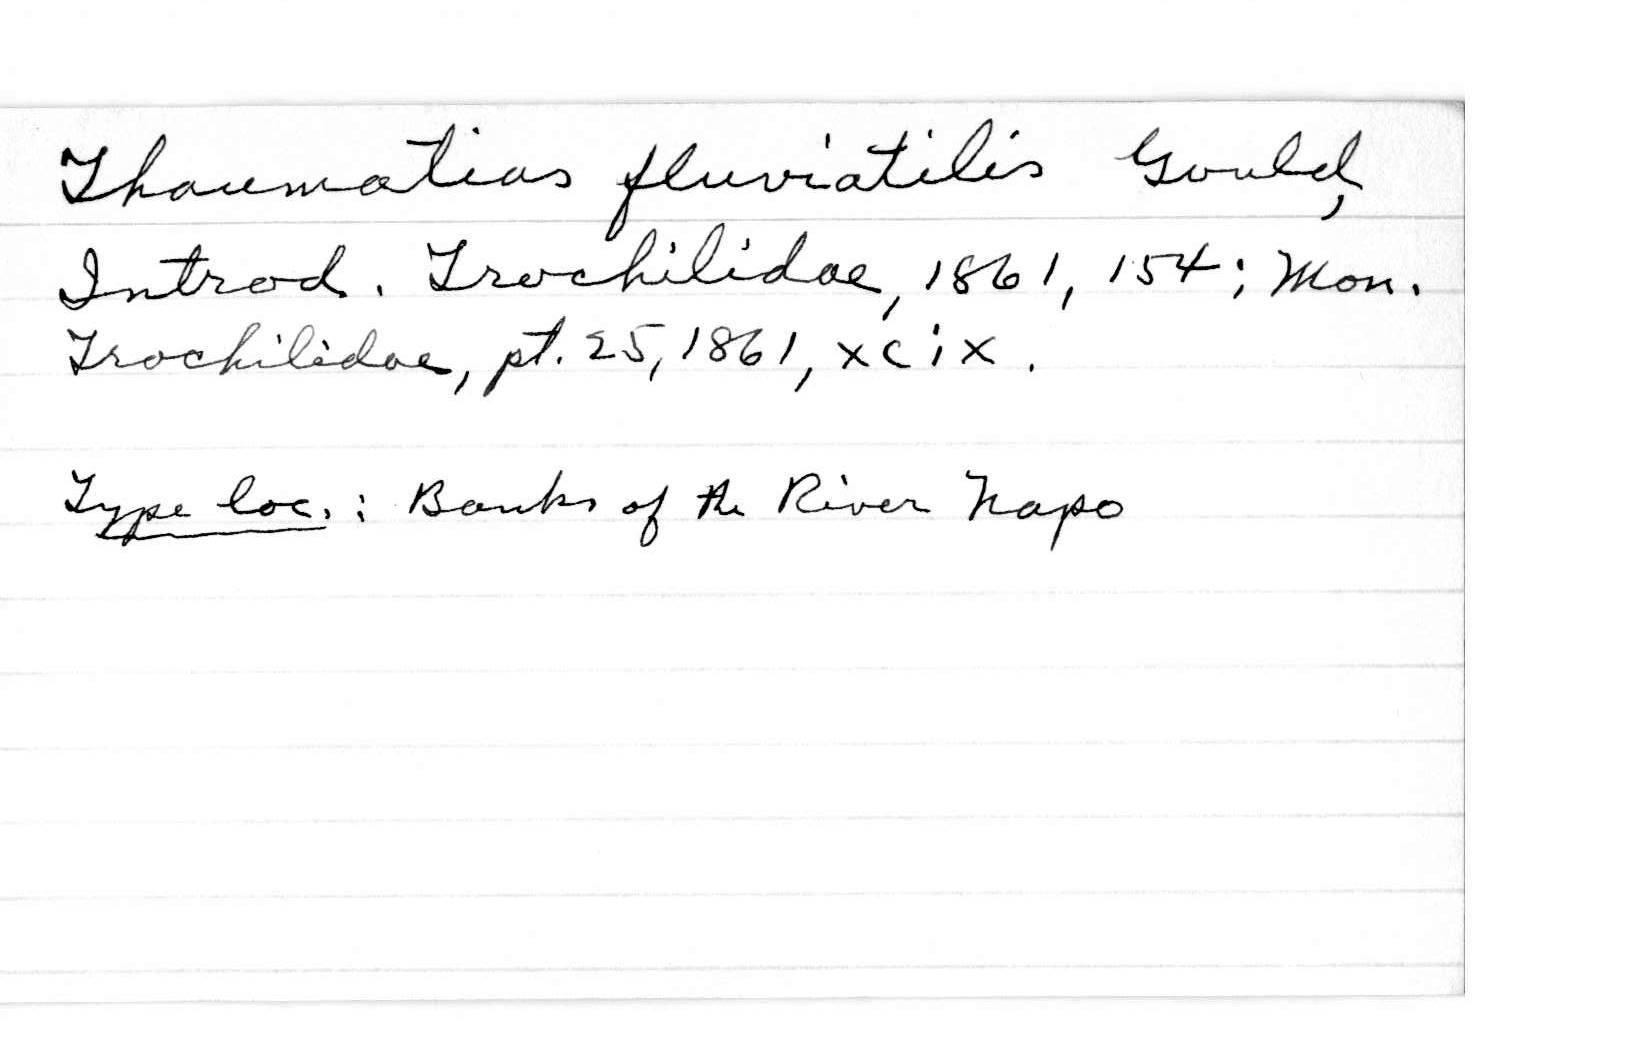 Thaumatias fluviatilis Gould,
Introd. Trochilidae, 1861, 154; Mon.
Trochilidae, pt. 25, 1861, xcix.
Type loc.: Banks of the River Napo